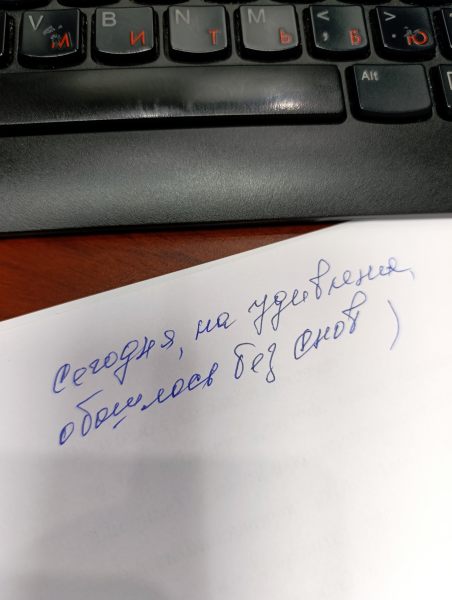 V М B И N Т M Ь < , Б > . Ю
Alt
Сегодня, на удивление,
обошлось без снов )